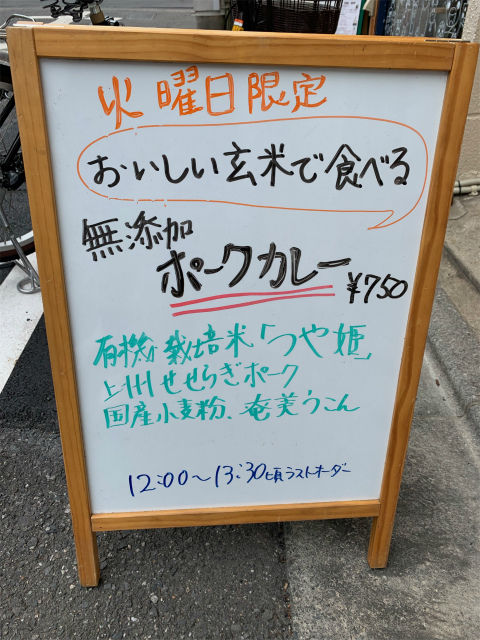 火曜日限定
おいしい玄米で食べる
無添加
ポークカレー ¥750
有機栽培米「つや姫」
上州せせらぎポーク
国産小麦粉、奄美うこん
12:00〜13:30頃ラストオーダー